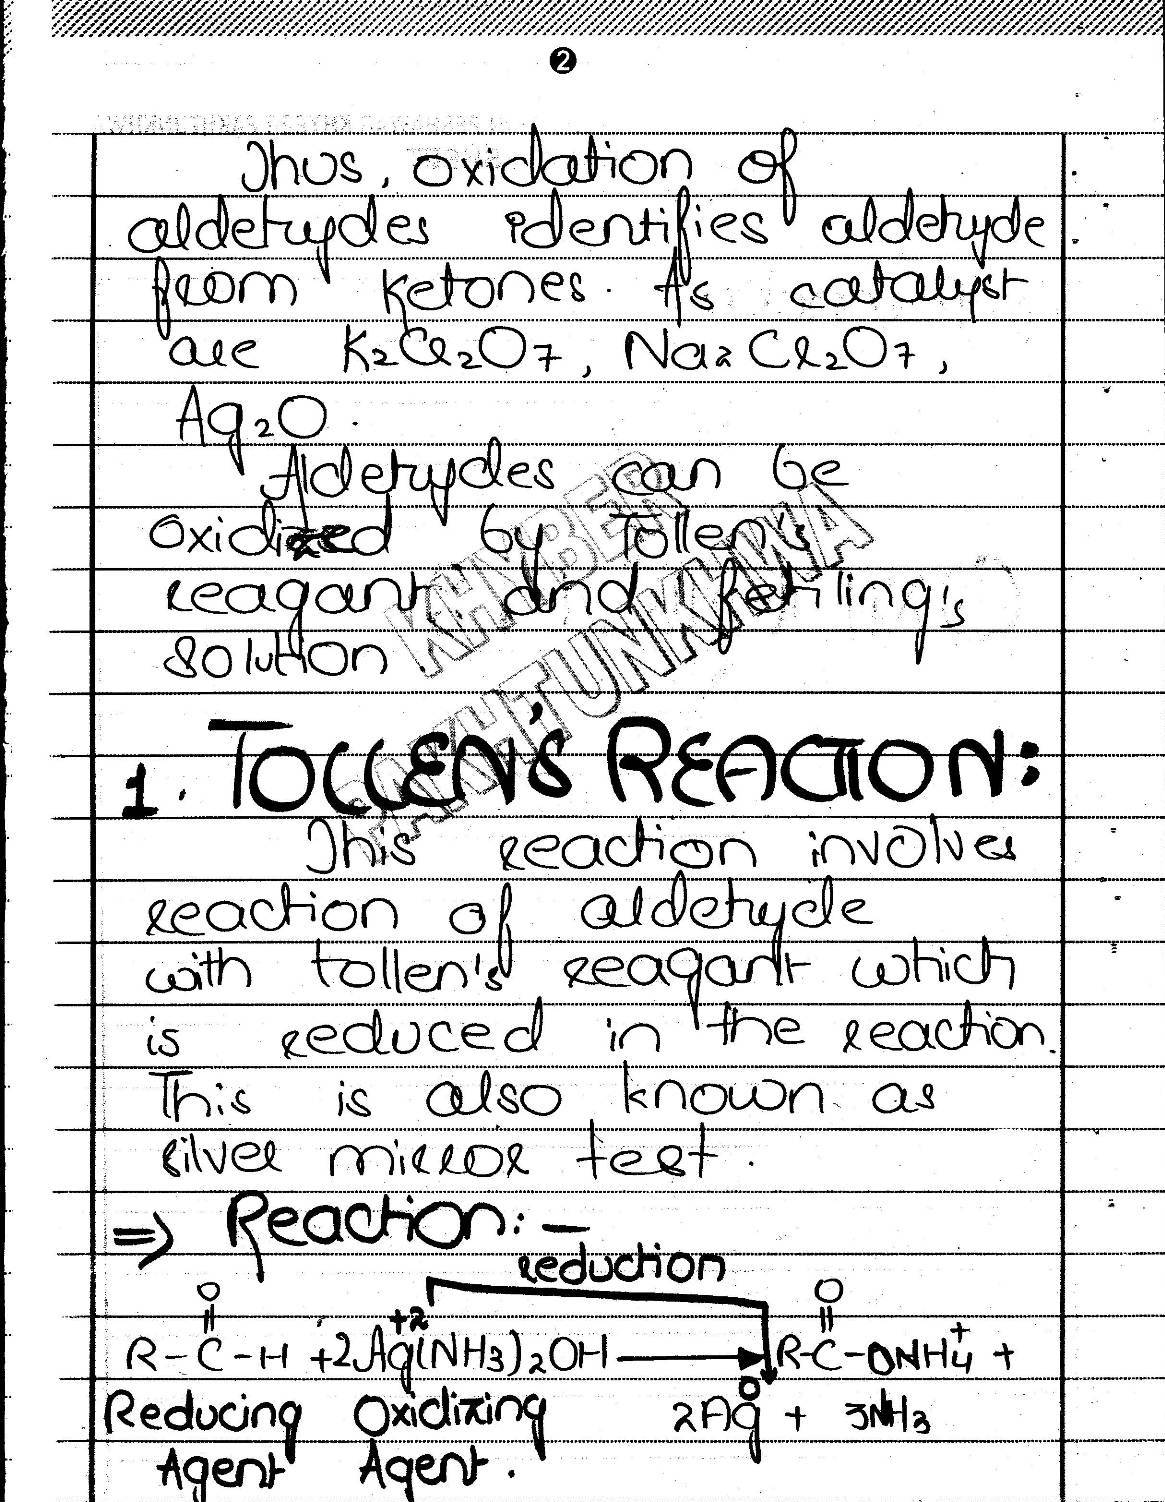 2
Thus, oxidation of
aldehydes identifies aldehyde
from ketones. As catalyst
are K2Cr2O7, Na2Cr2O7,
Ag2O.
Aldehydes can be
oxidized by Tollen's
reagant and fehling's
solution.
KHYBER
PAKHTUNKHWA
1. TOLLEN'S REACTION:
This reaction involves
reaction of aldehyde
with tollen's reagant which
is reduced in the reaction.
This is also known as
silver mirror test.
⇒ Reaction:-
reduction
O O
|| +2 ||
R-C-H +2Ag(NH3)2OH → R-C-ONH4+ +
Reducing Oxidizing 2Ag0 + 3NH3
Agent Agent.